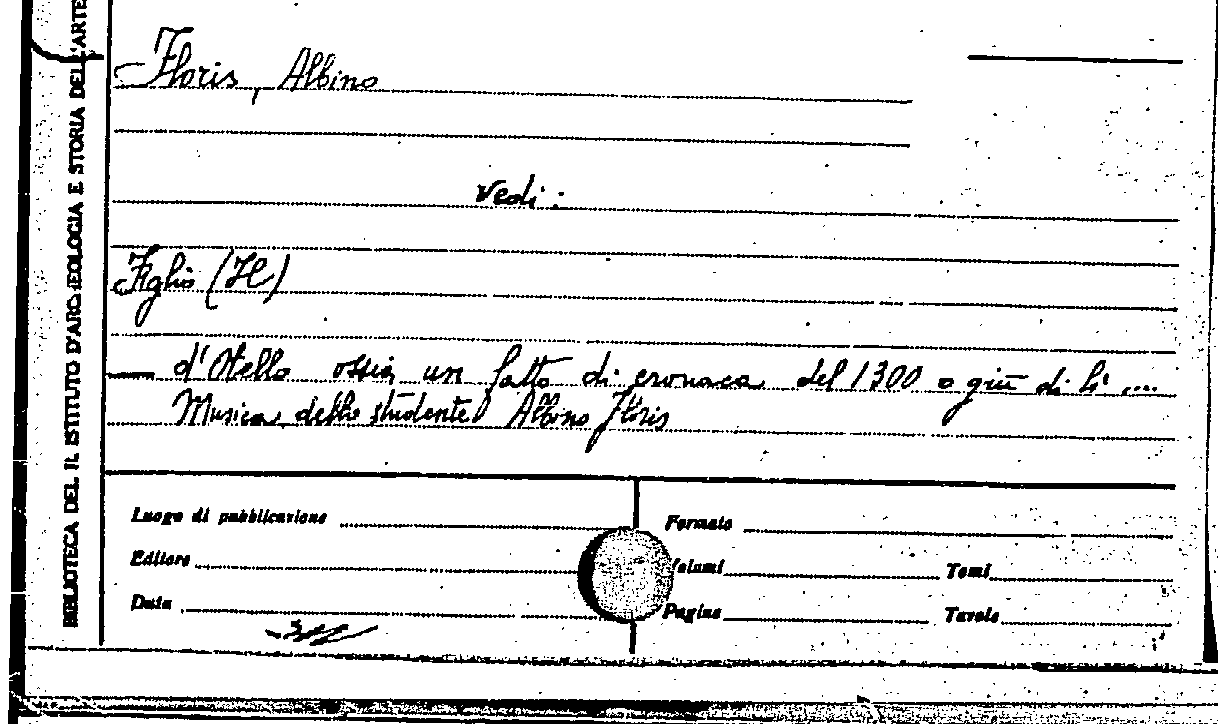 BIBLIOTECA DEL R. ISTITUTO D'ARCHEOLOGIA E STORIA DELL'ARTE
Floris, Albino
vedi:
Figlio (Il)
d'Otello ossia un fatto di cronaca del 1300 o giù di lì ....
Musica dello studente Albino Floris
Luogo di pubblicazione
Formato
Editore
Volumi
Tomi
Data
Pagine
Tavole